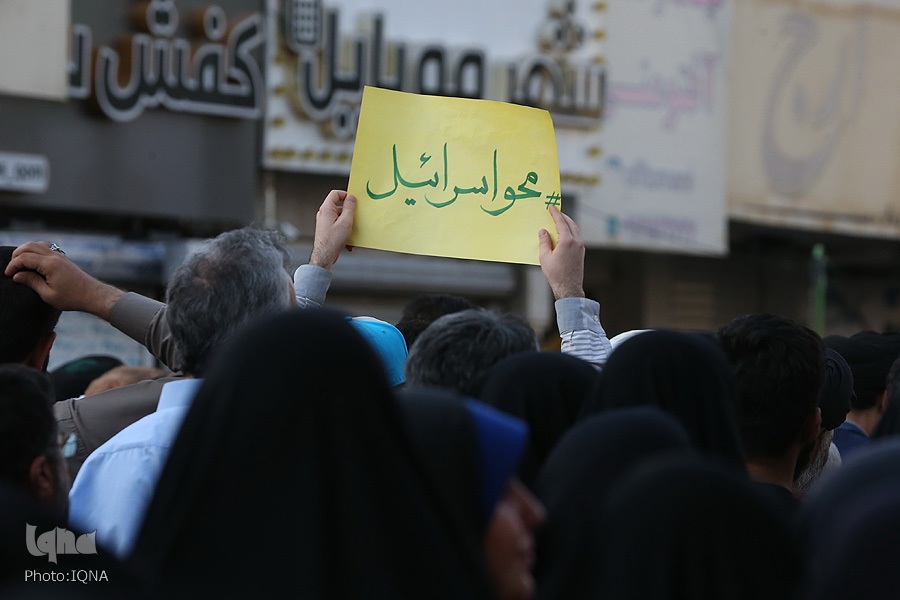 کفش
شهر موبایل
#محو اسرائیل
IQNA
Photo:IQNA